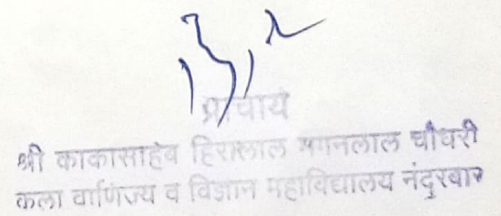 प्राचार्य
श्री काकासाहेब हिरालाल मगनलाल चौधरी
कला वाणिज्य व विज्ञान महाविद्यालय नंदुरबार